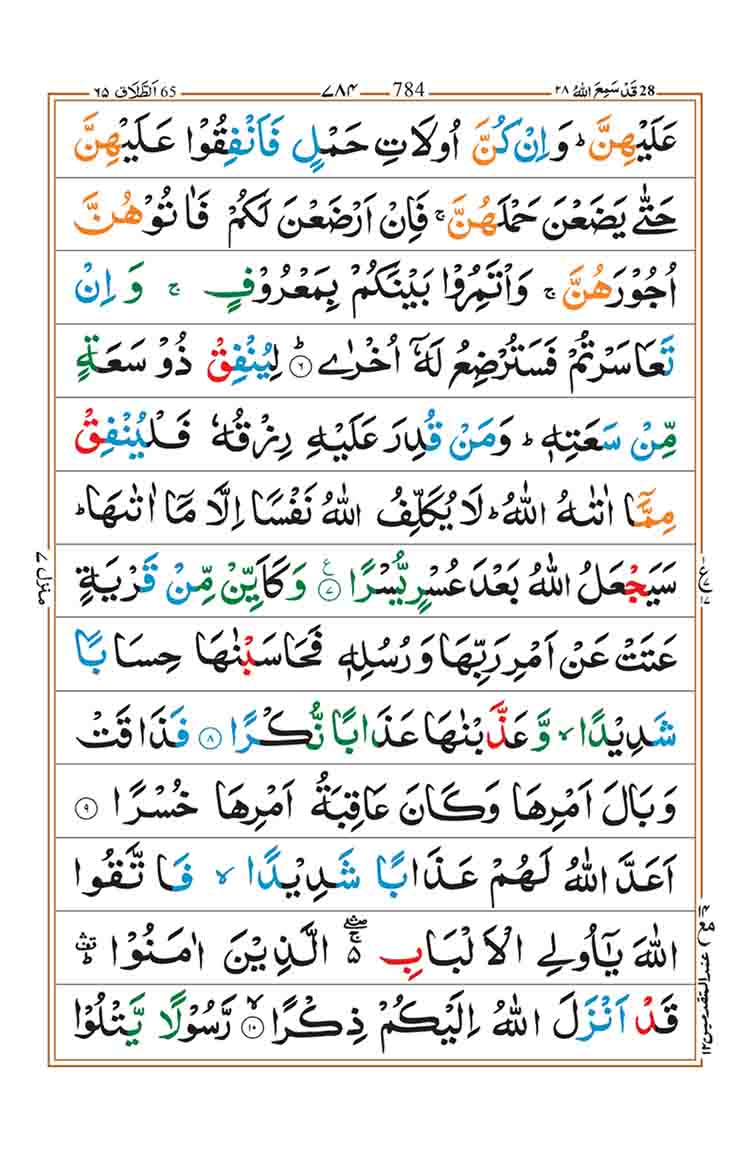 65 اَلطَّلَاق ۶۵
۷۸۴ 784
28 قَدْ سَمِعَ اللهُ ۲۸
عَلَيْهِنَّ ؕ وَاِنْ كُنَّ اُولَاتِ حَمْلٍ فَاَنْفِقُوْا عَلَيْهِنَّ
حَتّٰى يَضَعْنَ حَمْلَهُنَّ ۚ فَاِنْ اَرْضَعْنَ لَكُمْ فَاٰتُوْهُنَّ
اُجُوْرَهُنَّ ۚ وَاْتَمِرُوْا بَيْنَكُمْ بِمَعْرُوْفٍ ۚ وَاِنْ
تَعَاسَرْتُمْ فَسَتُرْضِعُ لَهٗۤ اُخْرٰى ؕ﴿۶﴾ لِيُنْفِقْ ذُوْ سَعَةٍ
مِّنْ سَعَتِهٖ ؕ وَمَنْ قُدِرَ عَلَيْهِ رِزْقُهٗ فَلْيُنْفِقْ
مِمَّاۤ اٰتٰىهُ اللهُ ؕ لَا يُكَلِّفُ اللهُ نَفْسًا اِلَّا مَاۤ اٰتٰىهَا ؕ
سَيَجْعَلُ اللهُ بَعْدَ عُسْرٍ يُّسْرًا ﴿۷﴾ ع وَكَاَيِّنْ مِّنْ قَرْيَةٍ
عَتَتْ عَنْ اَمْرِ رَبِّهَا وَرُسُلِهٖ فَحَاسَبْنٰهَا حِسَابًا
شَدِيْدًا ۙ وَّعَذَّبْنٰهَا عَذَابًا نُّكْرًا ﴿۸﴾ فَذَاقَتْ
وَبَالَ اَمْرِهَا وَكَانَ عَاقِبَةُ اَمْرِهَا خُسْرًا ﴿۹﴾
اَعَدَّ اللهُ لَهُمْ عَذَابًا شَدِيْدًا ۙ فَاتَّقُوا
اللهَ يٰۤاُولِى الْاَلْبَابِ ۛۖ۵ۚ الَّذِيْنَ اٰمَنُوْا ؕۛ
قَدْ اَنْزَلَ اللهُ اِلَيْكُمْ ذِكْرًا ۙ﴿۱۰﴾ رَّسُوْلًا يَّتْلُوْا
منزل ۷
عند المتقدمين ۱۲